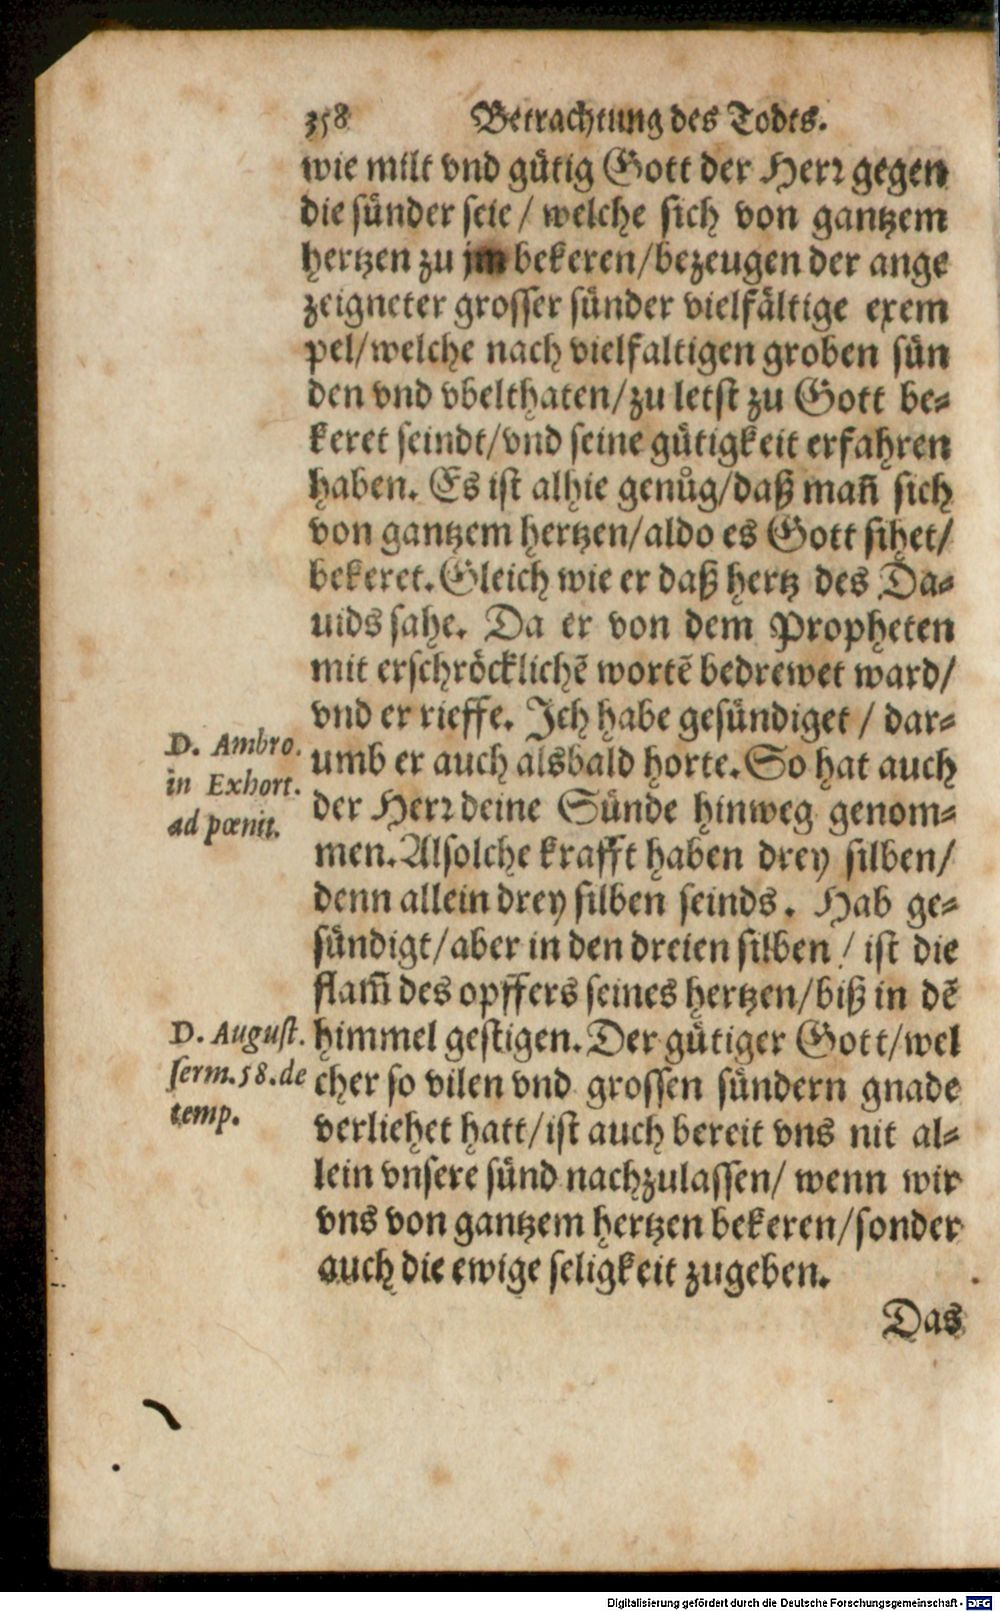 358 Betrachtung des Todts.
wie milt vnd gütig Gott der Herr gegen
die sünder seie / welche sich von gantzem
hertzen zu jm bekeren/bezeugen der ange
zeigneter grosser sünder vielfältige exem
pel/welche nach vielfaltigen groben sün
den vnd vbelthaten/zu letst zu Gott be-
keret seindt/vnd seine gütigkeit erfahren
haben. Es ist alhie genůg/daß mañ sich
von gantzem hertzen/aldo es Gott sihet/
bekeret. Gleich wie er daß hertz des Da-
uids sahe. Da er von dem Propheten
mit erschröcklichẽ wortẽ bedrewet ward/
vnd er rieffe. Jch habe gesündiget / dar-
D. Ambro.
in Exhort.
ad pœnit.
umb er auch alsbald horte. So hat auch
der Herr deine Sünde hinweg genom-
men. Alsolche krafft haben drey silben/
denn allein drey silben seinds. Hab ge-
sündigt/aber in den dreien silben / ist die
flam̃ des opffers seines hertzen/biß in dẽ
D. August.
serm.58.de
temp.
himmel gestigen. Der gütiger Gott/wel
cher so vilen vnd grossen sündern gnade
verliehet hatt/ist auch bereit vns nit al-
lein vnsere sünd nachzulassen/ wenn wir
vns von gantzem hertzen bekeren/sonder
auch die ewige seligkeit zugeben.
Das
Digitalisierung gefördert durch die Deutsche Forschungsgemeinschaft - DFG